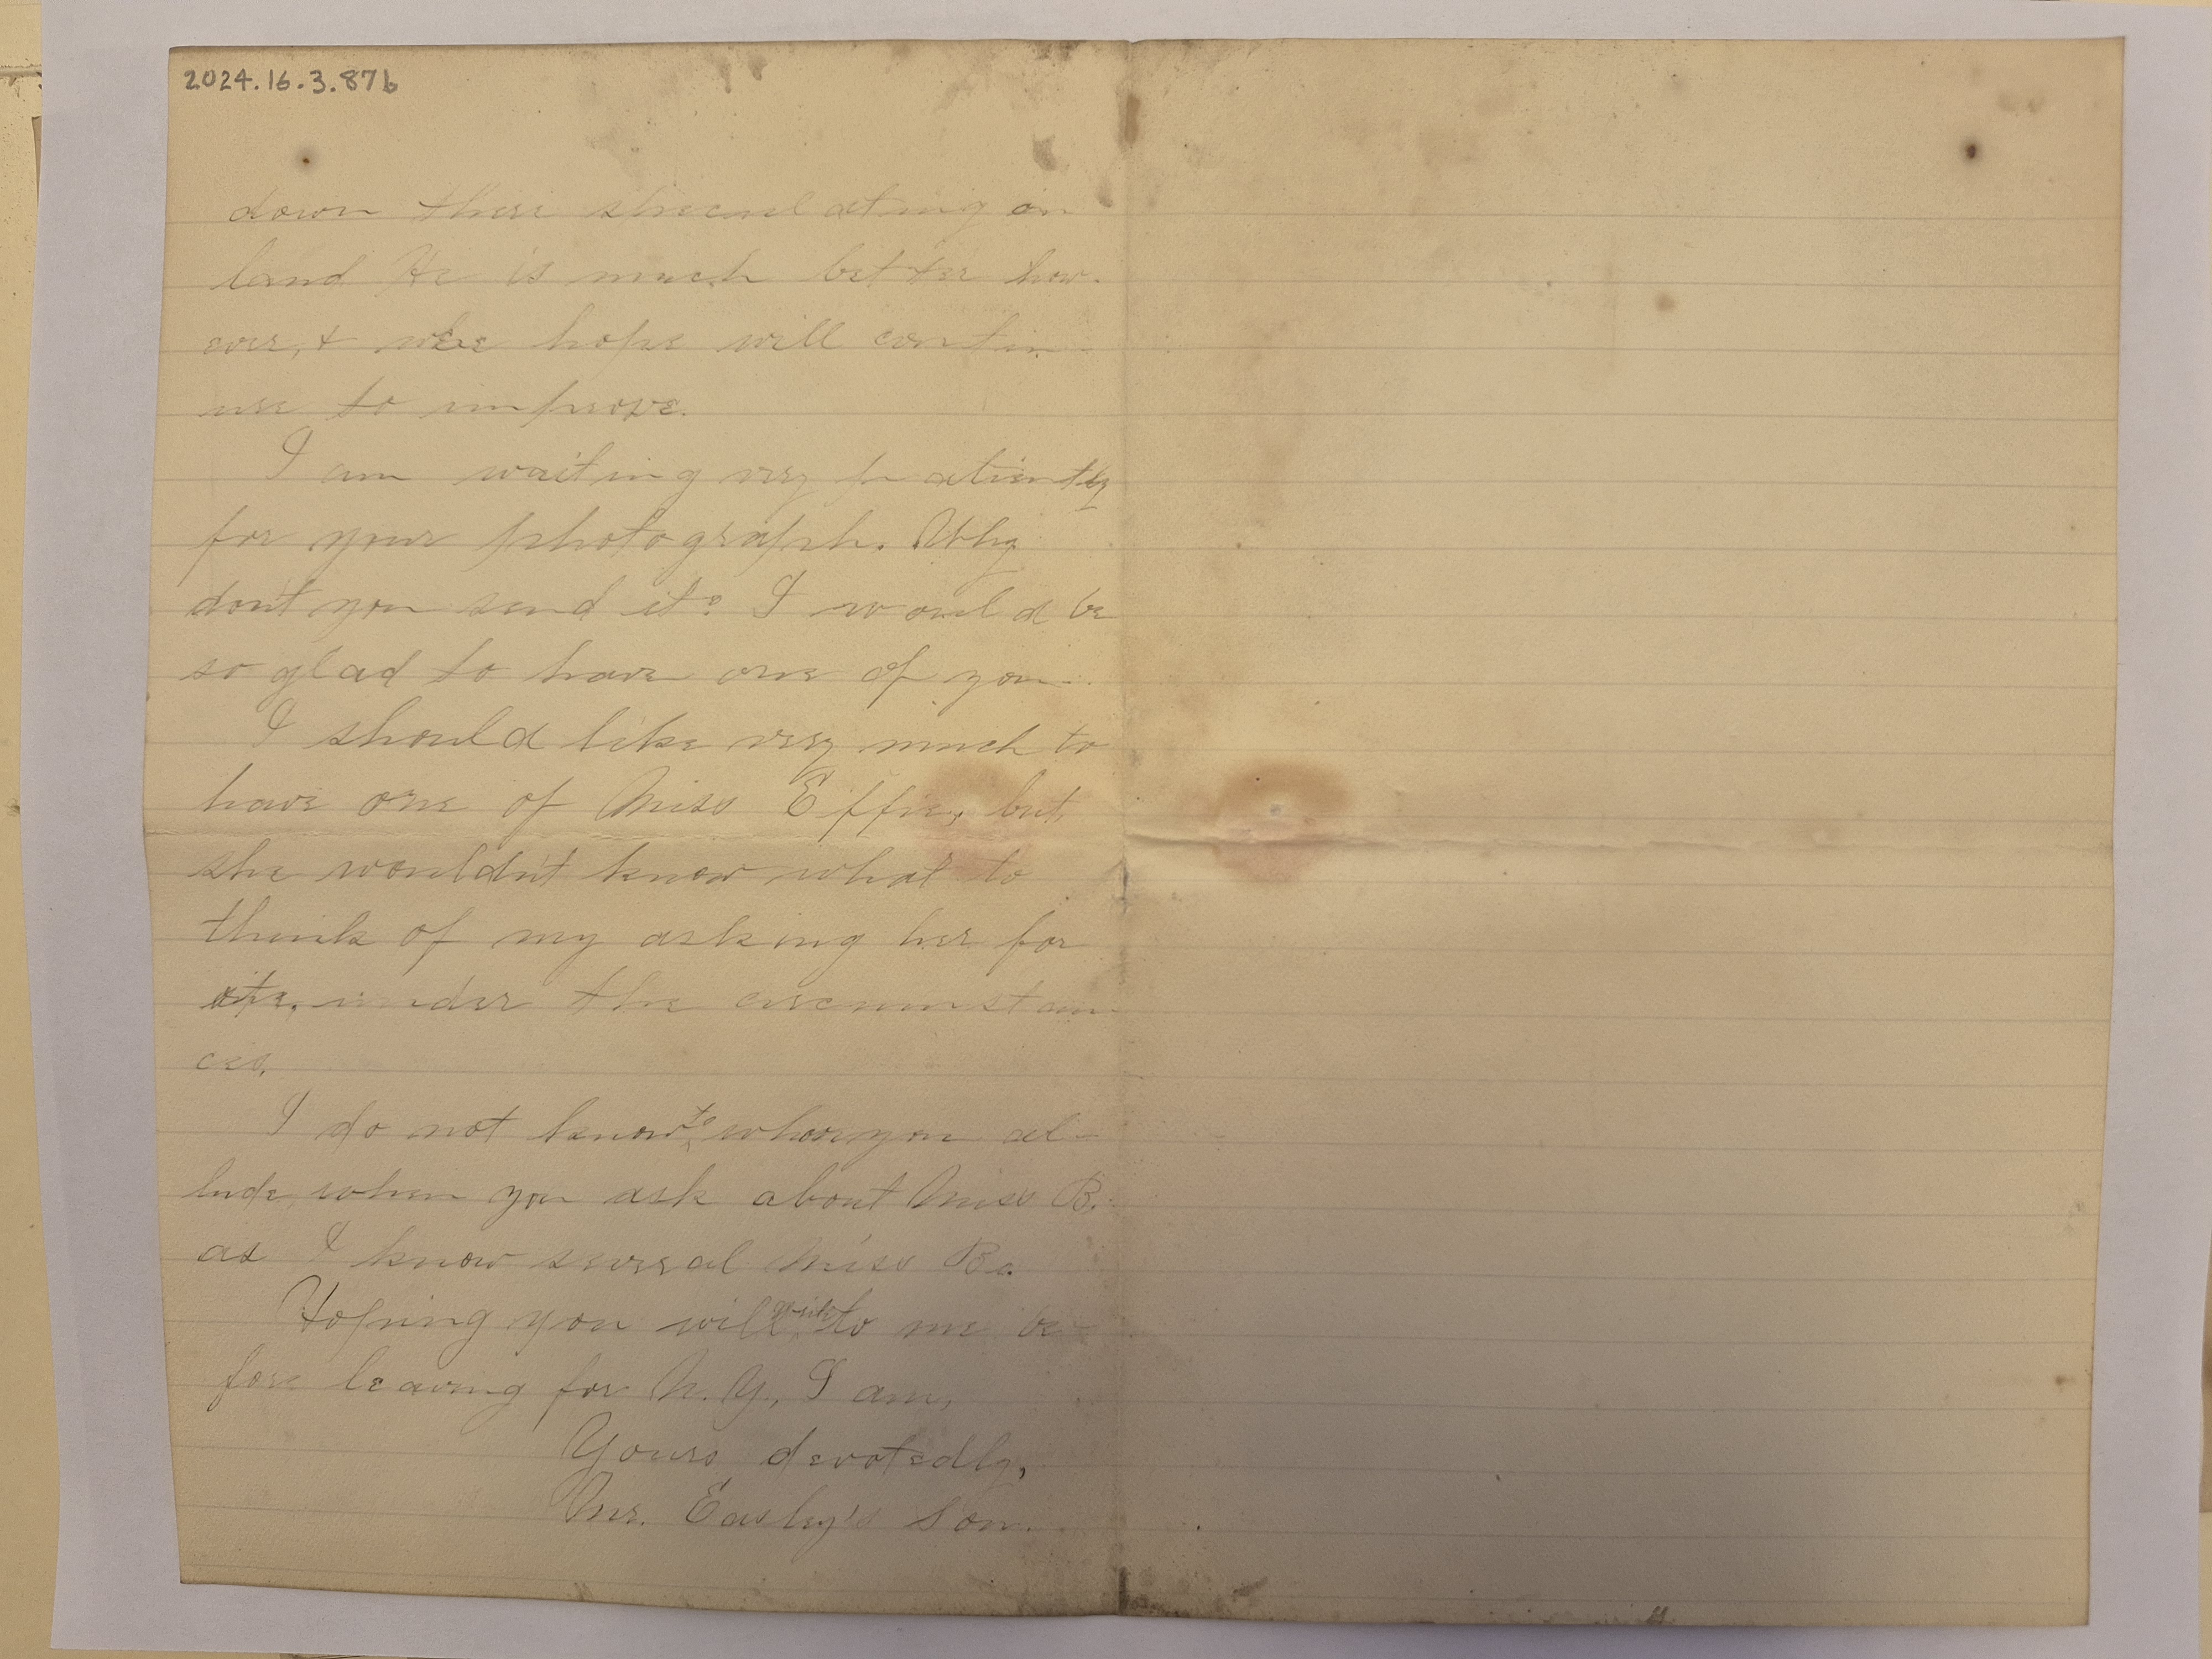 2024.16.3.87b
down there speculating on
land He is much better how-
ever, & whe hope will contin-
ue to improve.
I am waiting very patiently
for your photograph. Why
don't you send it? I would be
so glad to have one of you.
I should like very much to
have one of Miss Effie, but
she wouldn't know what to
think of my asking her for
one, under the circumstan-
ces.
I do not know to whom you al-
lude, when you ask about Miss B.
as I know several Miss Bs.
Hoping you will write to me be-
fore leaving for N. Y., I am,
Yours devotedly,
Mr. Easley's son.